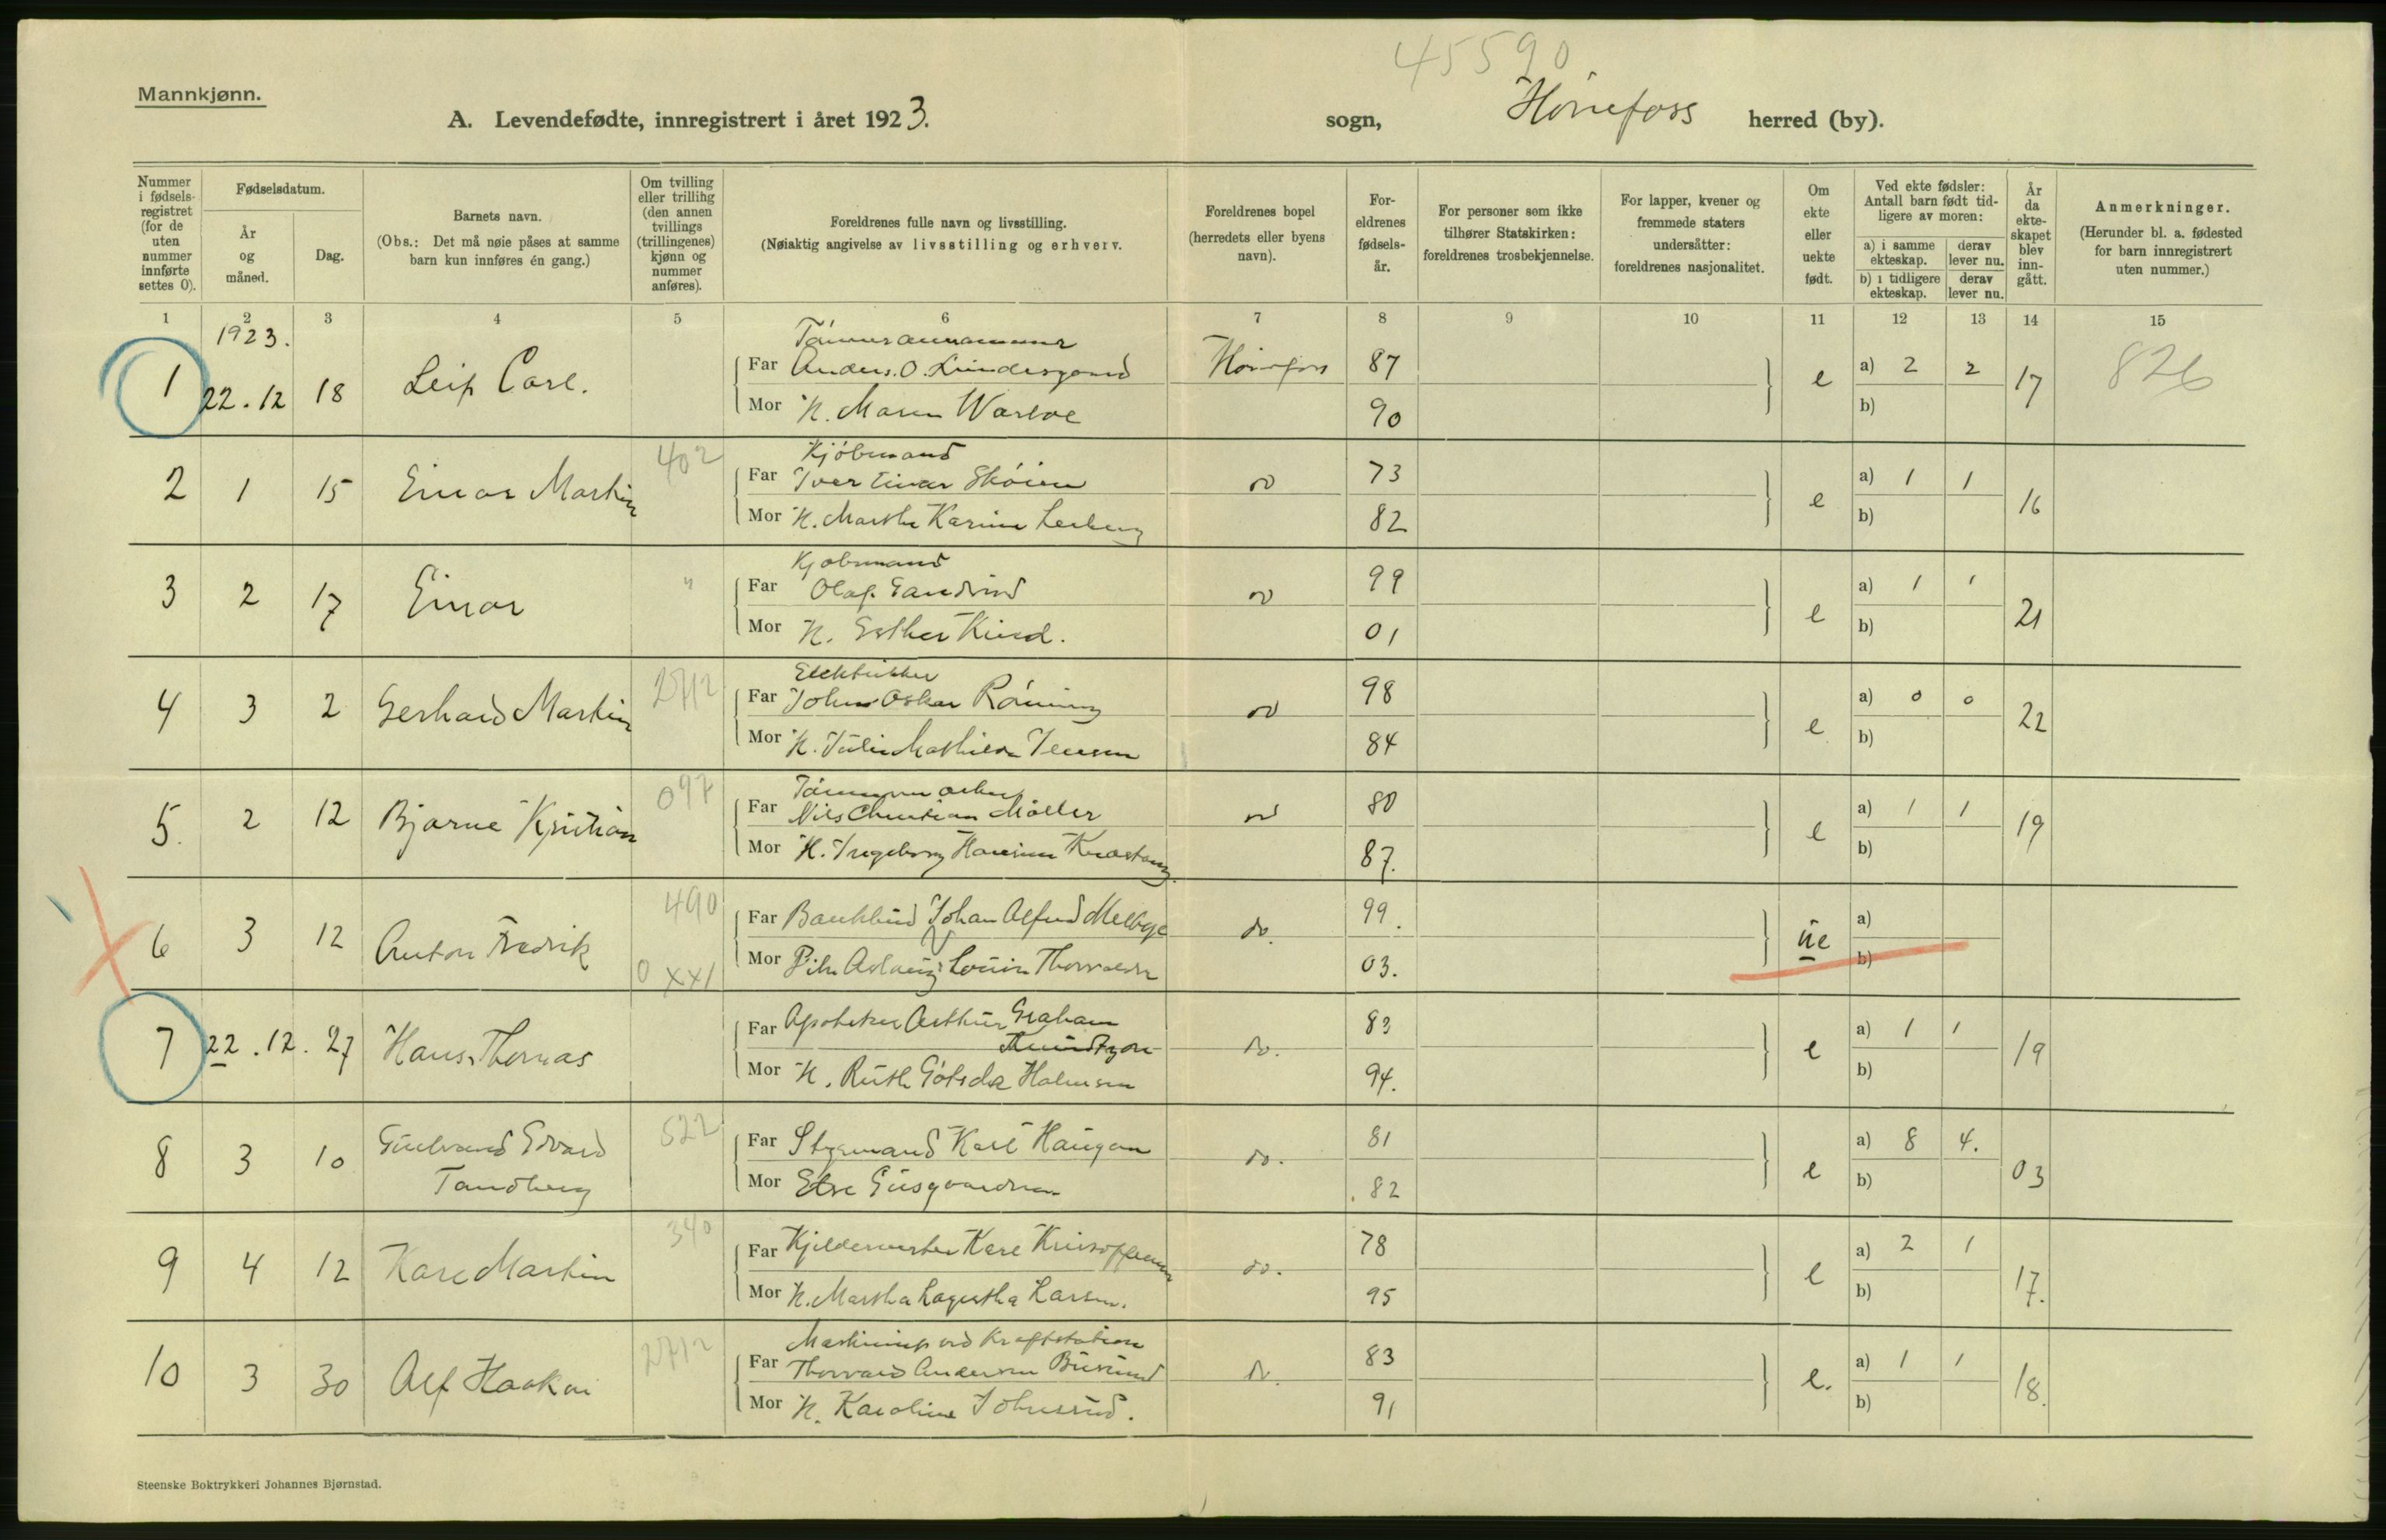 45590
Mannkjønn.
A. Levendefødte, innregistrert i året 1923. sogn, Hönefoss herred (by).
Nummer i fødselsregistret (for de uten nummer innførte settes 0).
Fødselsdatum.
År og måned.
Dag.
Barnets navn.
(Obs.: Det må nøie påses at samme barn kun innføres én gang.)
Om tvilling eller trilling (den annen tvillings (trillingenes) kjønn og nummer anføres).
Foreldrenes fulle navn og livsstilling.
(Nøiaktig angivelse av livsstilling og erhverv.
Foreldrenes bopel (herredets eller byens navn).
Foreldrenes fødselsår.
For personer som ikke tilhører Statskirken: foreldrenes trosbekjennelse.
For lapper, kvener og fremmede staters undersåtter: foreldrenes nasjonalitet.
Om ekte eller uekte født.
Ved ekte fødsler: Antall barn født tidligere av moren:
a) i samme ekteskap. derav lever nu.
b) i tidligere ekteskap. derav lever nu.
År da ekteskapet blev inngått.
Anmerkninger.
(Herunder bl. a. fødested for barn innregistrert uten nummer.)
1 2 3 4 5 6 7 8 9 10 11 12 13 14 15
1923.
1 22.12 18 Leif Carl. Far Anders O. Hönefoss 87 e a) 2 2 17 826
Mor H. Maren 90 b)
402 Kjöbmand
2 1 15 Einar Martin Far Iver Einar Skóien do 73 e a) 1 1 16
Mor H. Martha Karine 82 b)
Kjöbmand
3 2 17 Einar " Far Olaf do 99 e a) 1 1 21
Mor H. Esther 01 b)
2712 Elektriker
4 3 2 Gerhard Martin Far Johan Oskar Róning do 98 e a) 0 0 22
Mor H. Julie Mathilde Jensen 84 b)
097
5. 2 12 Bjarne Kristian Far Nils Christian Möller do 80 e a) 1 1 19
Mor H. Ingeborg 87. b)
490
6 3 12 Anton Fredrik Far Johan Alfred Melbye do. 99. ue a)
0 XXI Mor Louise 03. b)
7 22.12. 27 Hans Thomas Far Apoteker Arthur Graham do. 83 e a) 1 1 19
Mor H. Ruth Holmsen 94. b)
522
8 3 10 Gulbrand Edvard Far Karl Haugan do. 81 e a) 8 4. 03
Tandberg Mor 82 b)
340
9 4 12 Kare Martin Far Karl do. 78 e a) 2 1 17.
Mor H. Martha Lagertha Larsen. 95 b)
2712 Maskinist ved Kraftstation
10 3 30 Alf Haakon Far Thorvald Andersen do. 83 e. a) 1 1 18.
Mor H. Karoline Johnsrud. 91 b)
Steenske Boktrykkeri Johannes Bjørnstad.